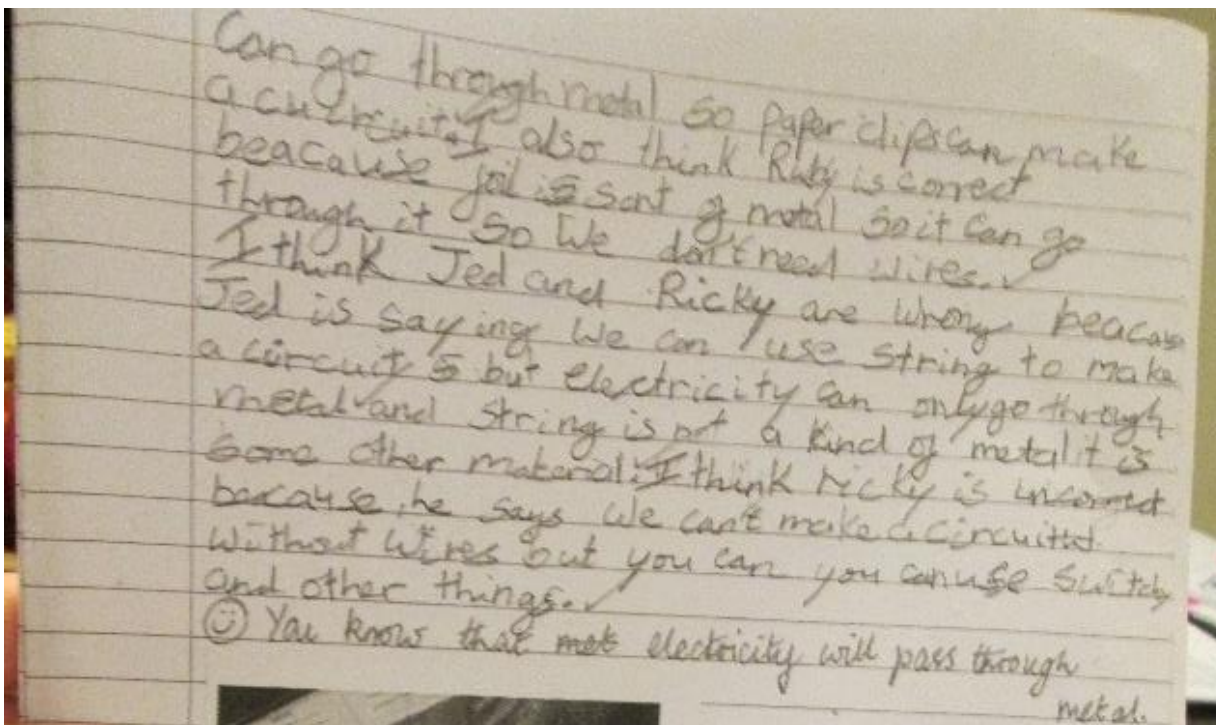 Can go through metal so paper clips can make
a cuircuit. I also think Ruby is correct
beacause foil is sort of metal so it can go
through it so we don't need wires.
I think Jed and Ricky are wrong beacause
Jed is saying we can use string to make
a circuit but electricity can only go through
metal and string is not a kind of metal it is
some other material. I think ricky is incorrect
because he says we can't make a circuit
without wires but you can you can use switch
and other things.
You know that electricity will pass through
metal.